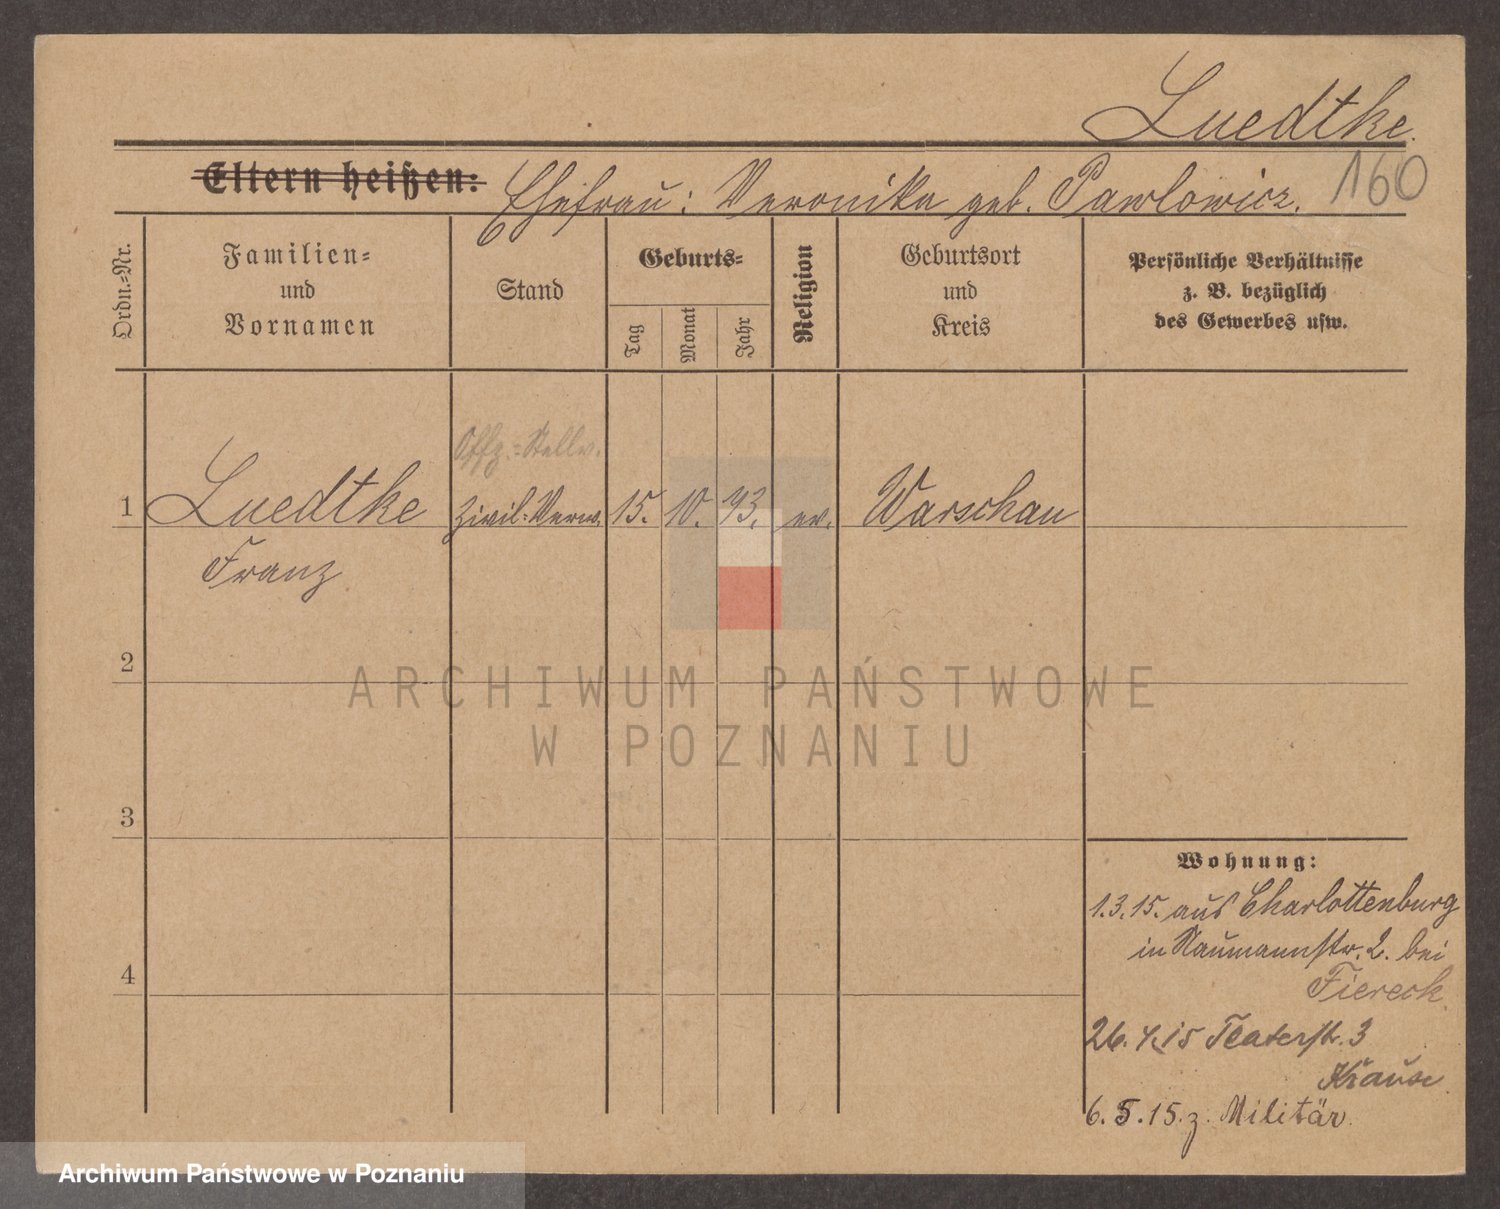 Luedtke.
160
Eltern heißen: Ehefrau: Veronika geb. Pawlowicz.
Ordn.-Nr.
Familien-
und
Vornamen
Stand
Geburts-
Tag
Monat
Jahr
Religion
Geburtsort
und
Kreis
Persönliche Verhältnisse
z. B. bezüglich
des Gewerbes usw.
Offz.-Stellv.
1 Luedtke Zivil-Verw. 15. 10. 93. ev. Warschau
Franz
2
ARCHIWUM PAŃSTWOWE
W POZNANIU
3
Wohnung:
1.3.15. aus Charlottenburg
in Naumannstr. 2. bei
Fiereck
4
26.4.15 Teaterstr. 3
Krause
6.5.15. z. Militär.
Archiwum Państwowe w Poznaniu